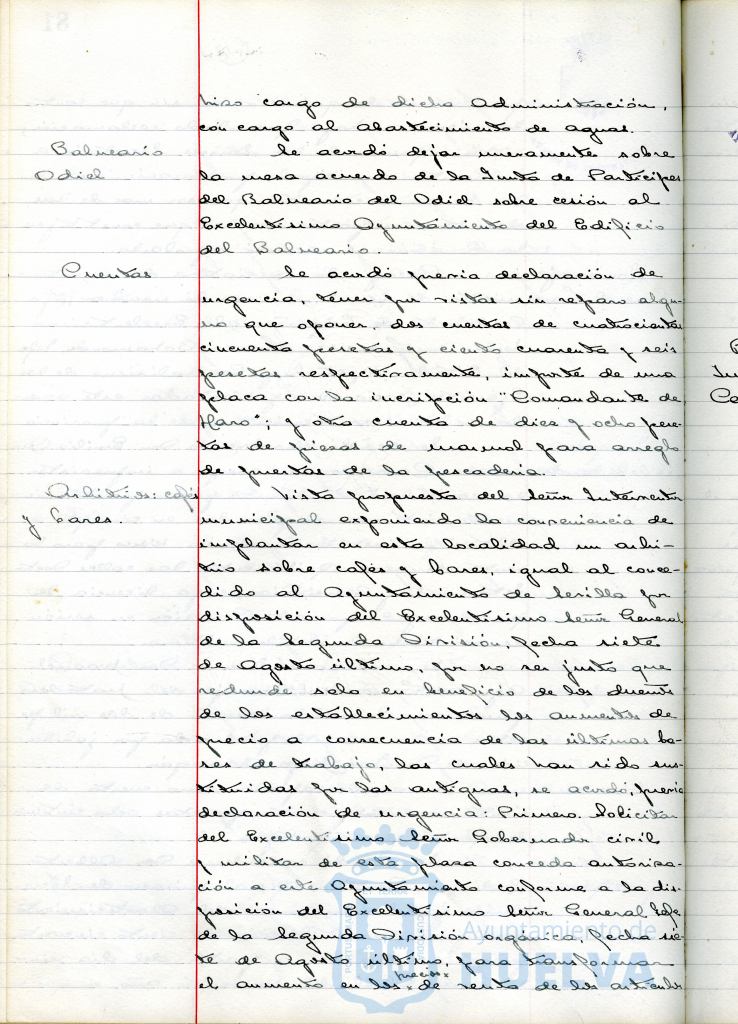 hizo cargo de dicha Administración,
con cargo al abastecimiento de aguas.
Balneario
Odiel
Se acordó dejar nuevamente sobre
la mesa acuerdo de la Junta de Partícipes
del Balneario del Odiel sobre cesión al
Excelentísimo Ayuntamiento del Edificio
del Balneario.
Cuentas
Se acordó previa declaración de
urgencia, tener por vistas sin reparo algu-
no que oponer, dos cuentas de cuatrocientas
cincuenta pesetas y ciento cuarenta y seis
pesetas respectivamente, importe de una
placa con la incripción "Comandante de
Haro"; y otra cuenta de diez y ocho pese-
tas de piezas de marmol para arreglo
de puertas de la pescadería.
Arbitrios: cafés
y bares.
Vista propuesta del Señor Interventor
municipal exponiendo la conveniencia de
implantar en esta localidad un arbi-
trio sobre cafés y bares, igual al conce-
dido al Ayuntamiento de Sevilla por
disposición del Excelentísimo Señor General
de la Segunda División, fecha siete
de Agosto último, por no ser justo que
redunde solo en beneficio de los dueños
de los establecimientos los aumentos de
precio a consecuencia de las últimas ba-
ses de trabajo, las cuales han sido sus-
tituidas por las antiguas, se acordó, previa
declaración de urgencia: Primero. Solicitar
del Excelentísimo Señor Gobernador civil
y militar de esta plaza conceda autoriza-
ción a este Ayuntamiento conforme a la dis-
posición del Excelentísimo Señor General Jefe
de la Segunda División orgánica, fecha sie-
te de Agosto último, para transformar
precios
el aumento en los x de venta de los artículos
Ayuntamiento de
HUELVA